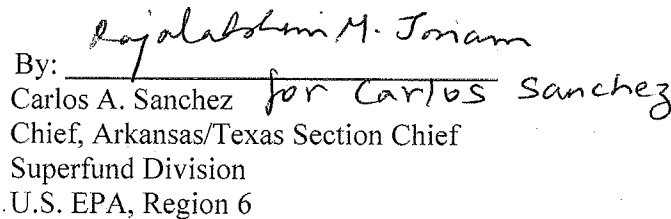 Rajalakshmi M.
By:
Carlos A. Sanchez for Carlos Sanchez
Chief, Arkansas/Texas Section Chief
Superfund Division
U.S. EPA, Region 6